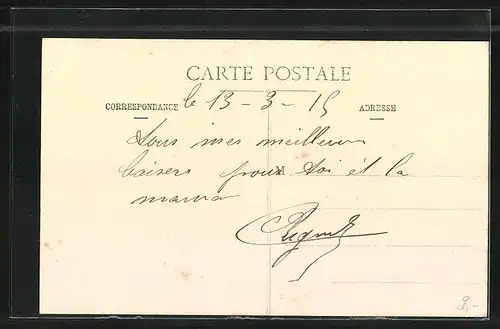 CARTE POSTALE
CORRESPONDANCE le 13-3-15 ADRESSE
Tous mes meilleurs
baisers pour toi et la
maman
M
9,-